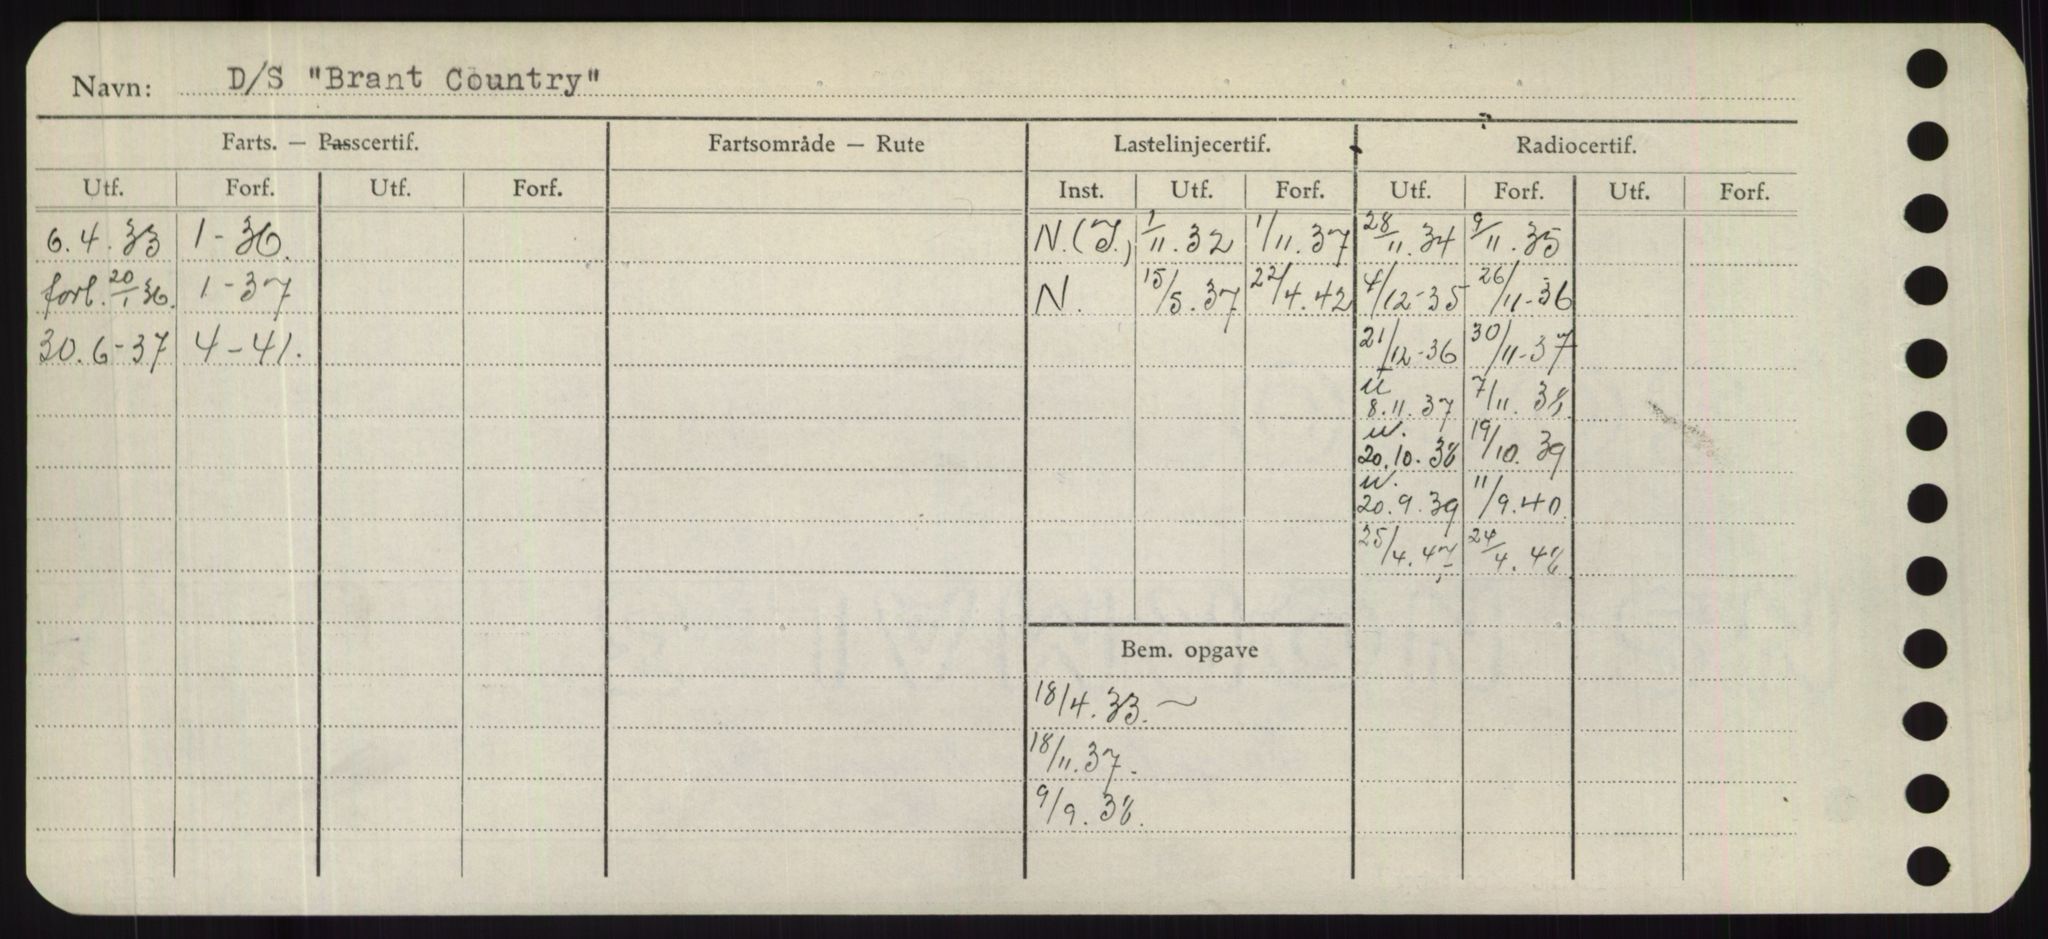 Navn: D/S "Brant Country"
Farts. — Passcertif. Fartsområde — Rute Lastelinjecertif. Radiocertif.
Utf. Forf. Utf. Forf. Inst. Utf. Forf. Utf. Forf. Utf. Forf.
6.4.33 1-36. N.(I.) 1/11.32 1/11.37 28/11.34 9/11.35
forl. 20/1 36. 1-37 N. 15/5.37 22/4.42 4/12-35 26/11-36
30.6-37 4-41. 21/12-36 30/11-37
u 8.11.37 7/11.38.
u. 20.10.38 19/10.39
u. 20.9.39 11/9.40
25/4.47 24/4.48
Bem. opgave
18/4.33. ~
18/11.37.
9/9.38.